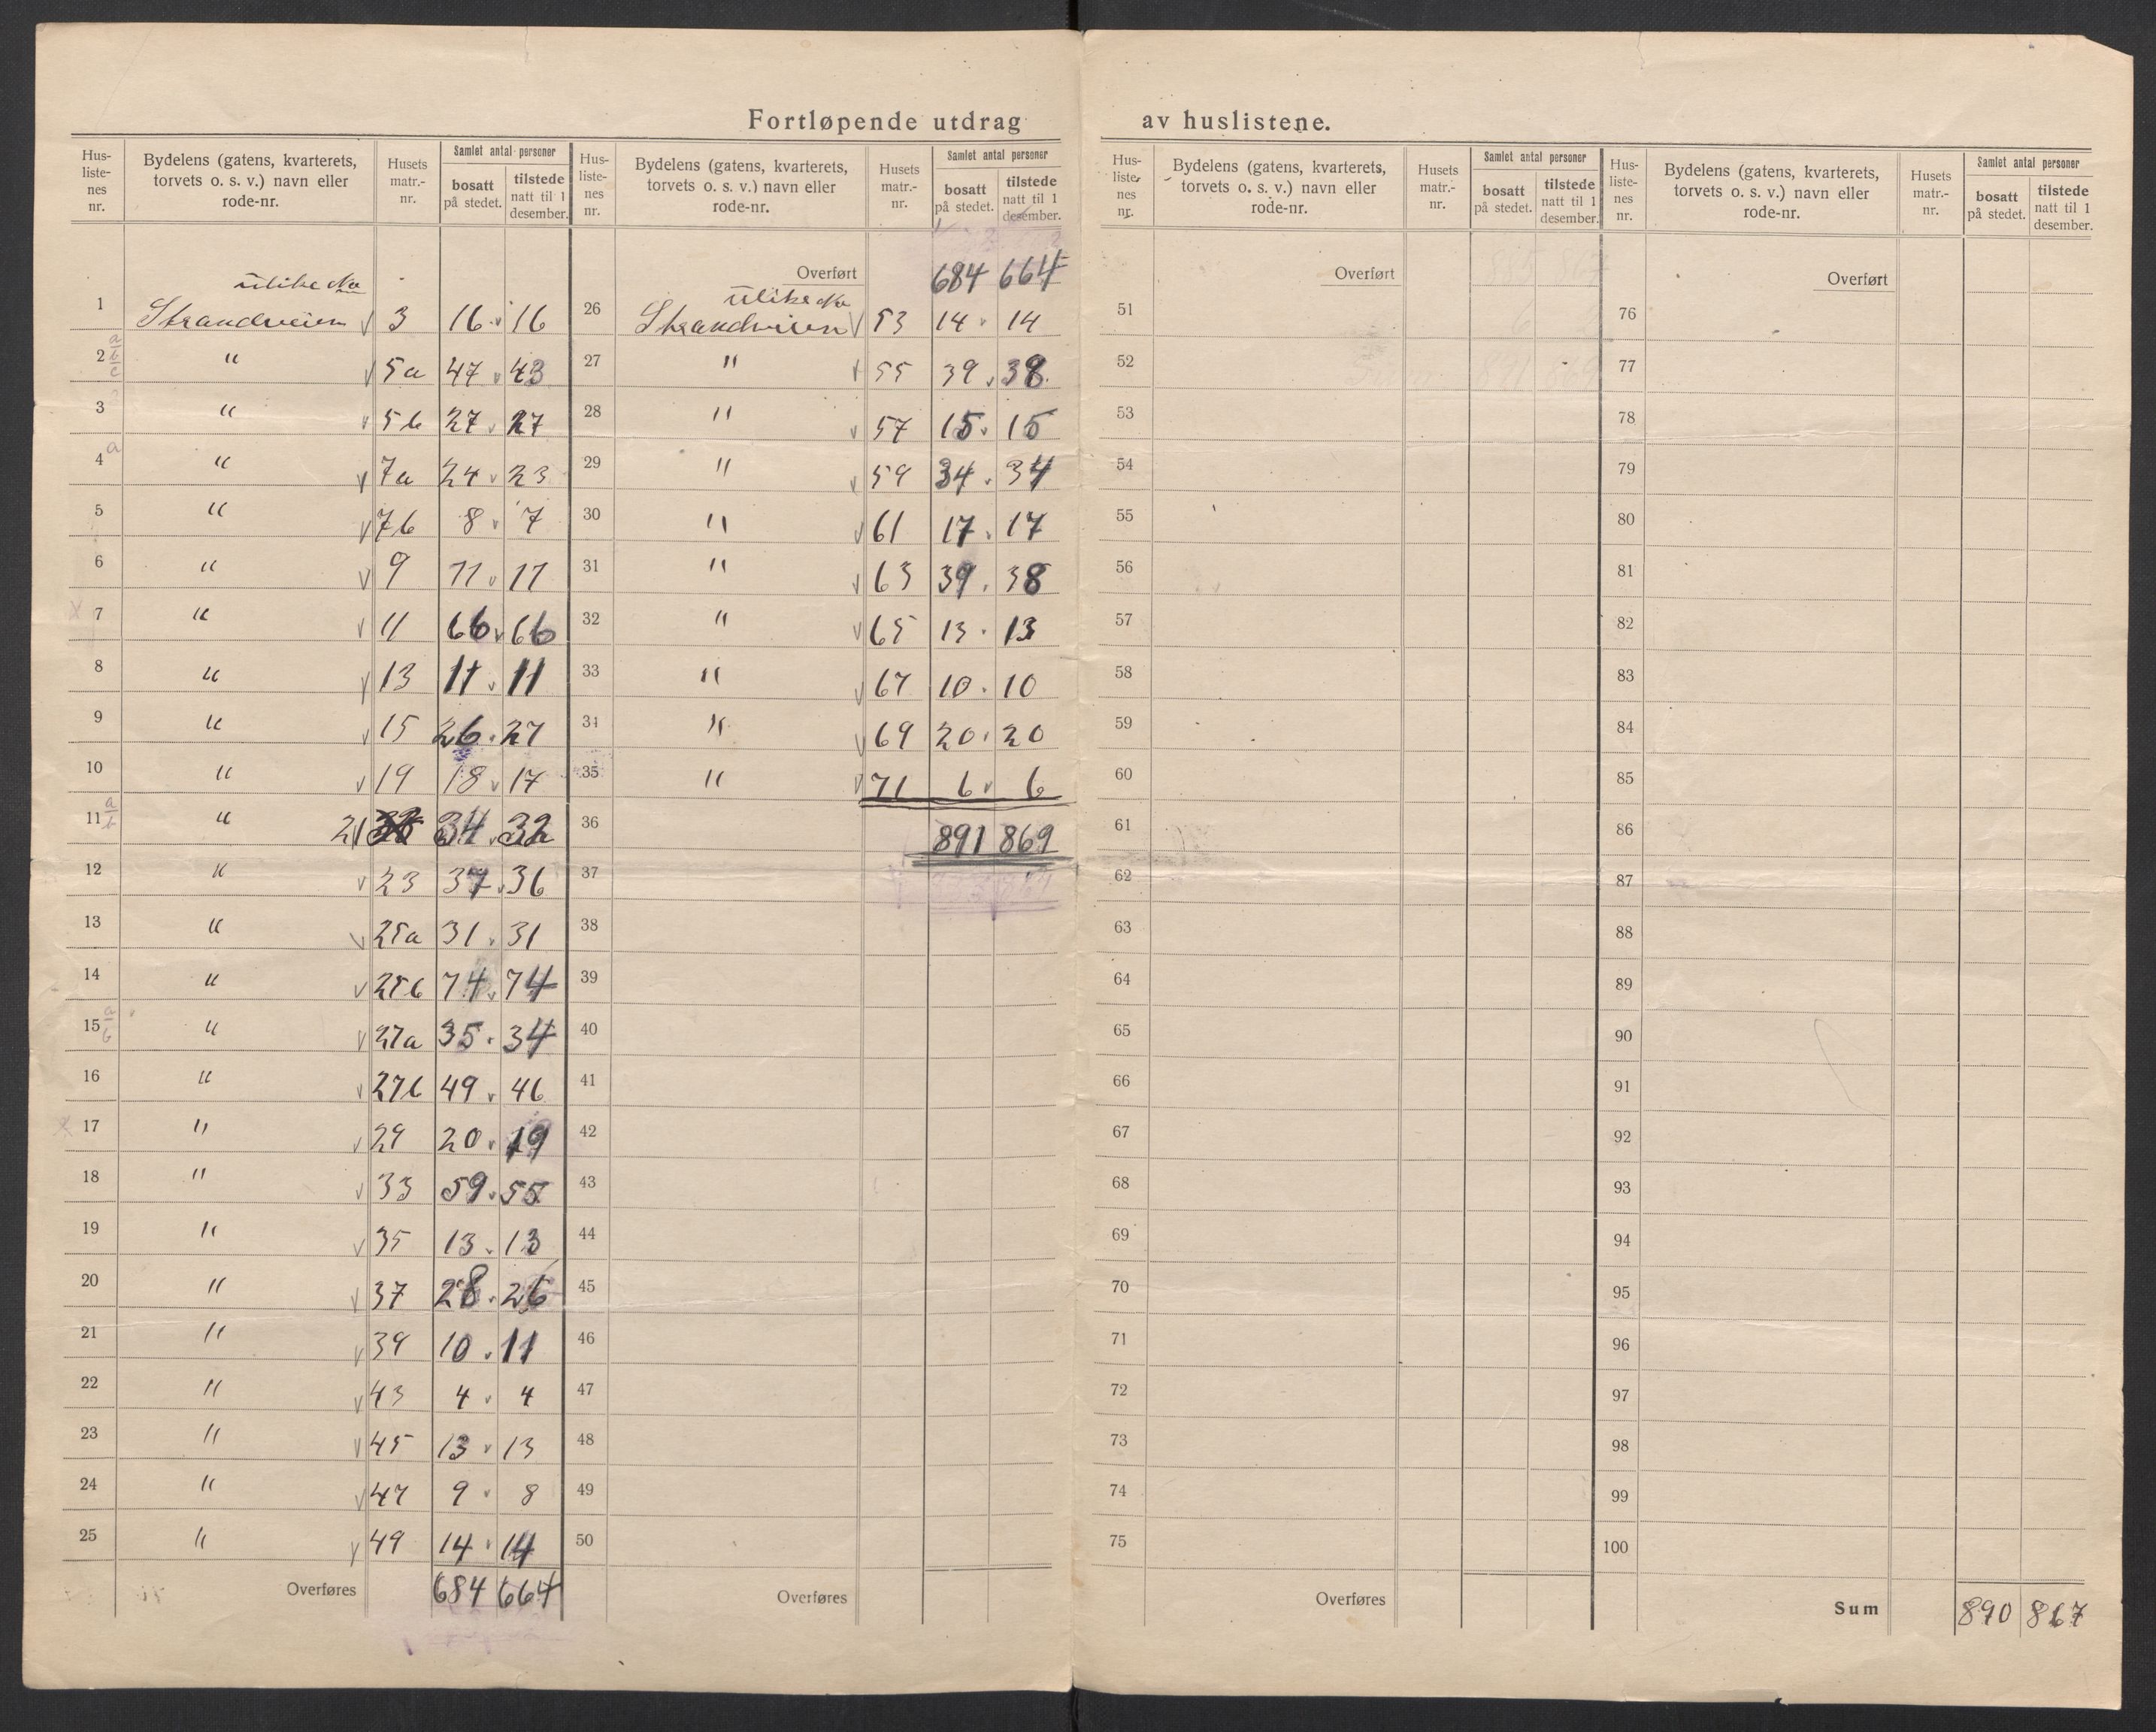 Fortløpende utdrag av huslistene.
Hus-liste-nes nr. | Bydelens (gatens, kvarterets, torvets o. s. v.) navn eller rode-nr. | Husets matr.-nr. | Samlet antal personer | bosatt på stedet. | tilstede natt til 1 desember.
ulike No
1 Strandveien 3 16 16
2 a b c " 5a 47 43
3 " 5b 27 27
4 a " 7a 24 23
5 " 7b 8 7
6 " 9 11 11
7 " 11 66 66
8 " 13 11 11
9 " 15 26 27
10 " 19 18 17
11 a b " 21 34 32
12 " 23 37 36
13 " 25a 31 31
14 " 25b 74 74
15 a b " 27a 35 34
16 " 27b 49 46
17 " 29 20 19
18 " 33 59 55
19 " 35 13 13
20 " 37 28 26
21 " 39 10 11
22 " 43 4 4
23 " 45 13 13
24 " 47 9 8
25 " 49 14 14
Overføres 684 664
Hus-liste-nes nr. | Bydelens (gatens, kvarterets, torvets o. s. v.) navn eller rode-nr. | Husets matr.-nr. | Samlet antal personer | bosatt på stedet. | tilstede natt til 1 desember.
Overført 684 664
ulike No
26 Strandveien 53 14 14
27 " 55 39 38
28 " 57 15 15
29 " 59 34 34
30 " 61 17 17
31 " 63 39 38
32 " 65 13 13
33 " 67 10 10
34 " 69 20 20
35 " 71 6 6
36 891 869
37
38
39
40
41
42
43
44
45
46
47
48
49
50
Overføres
Hus-liste-nes nr. | Bydelens (gatens, kvarterets, torvets o. s. v.) navn eller rode-nr. | Husets matr.-nr. | Samlet antal personer | bosatt på stedet. | tilstede natt til 1 desember.
Overført
51
52
53
54
55
56
57
58
59
60
61
62
63
64
65
66
67
68
69
70
71
72
73
74
75
Overføres
Hus-liste-nes nr. | Bydelens (gatens, kvarterets, torvets o. s. v.) navn eller rode-nr. | Husets matr.-nr. | Samlet antal personer | bosatt på stedet. | tilstede natt til 1 desember.
Overført
76
77
78
79
80
81
82
83
84
85
86
87
88
89
90
91
92
93
94
95
96
97
98
99
100
Sum 890 867